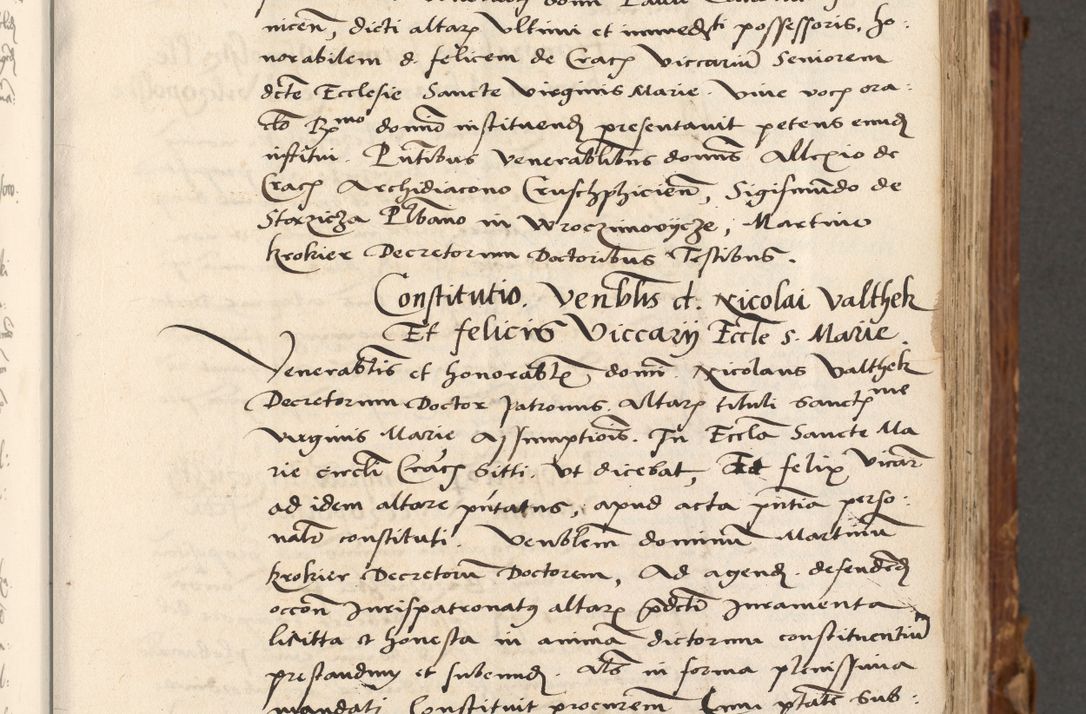 nicen, dicti altaris Ultimi et immediati possessoris, ho:
norabilem d. felicem de Crac Viccarium Seniorem
dcte Ecclesie Sancte Virginis Marie. Vive vocis ora:
clo Rmo domino instituend presentavit petens eund
institui. Pntibus Venerablibus domis Allexio de
Crac Archidiacono Cruschphicien, Sigismundo de
Starzicza Plbano in Wroczimovijcze, Martino
krokier Decretorum Doctoribus Testibus.
Constitutio. Venblis d. Nicolai Valthek
Et felicis Viccarij Eccle s. Marie.
Venerablis et honorablis domini Nicolaus Valthek
Decretorum Doctor Patronus Altaris tituli Sanctis me
Virginis Marie Assumptiois. In Eccla Sancte Ma
rie circli Crac Sitti. Ut dicebat, Et felix Vicari
ad idem altare pntatus, apud acta pntia perso:
nalr constituti. Venblem dominum Martinum
krokier Decretorum Doctorem, Ad agend. defendend
occon Jurispatronatus altaris pdcti Juramenta
licitta et honesta in animam dictorum constituentium
prestandum et subeund. Als in forma plenissima
mandati Constituit procurem Cum ptate sub: